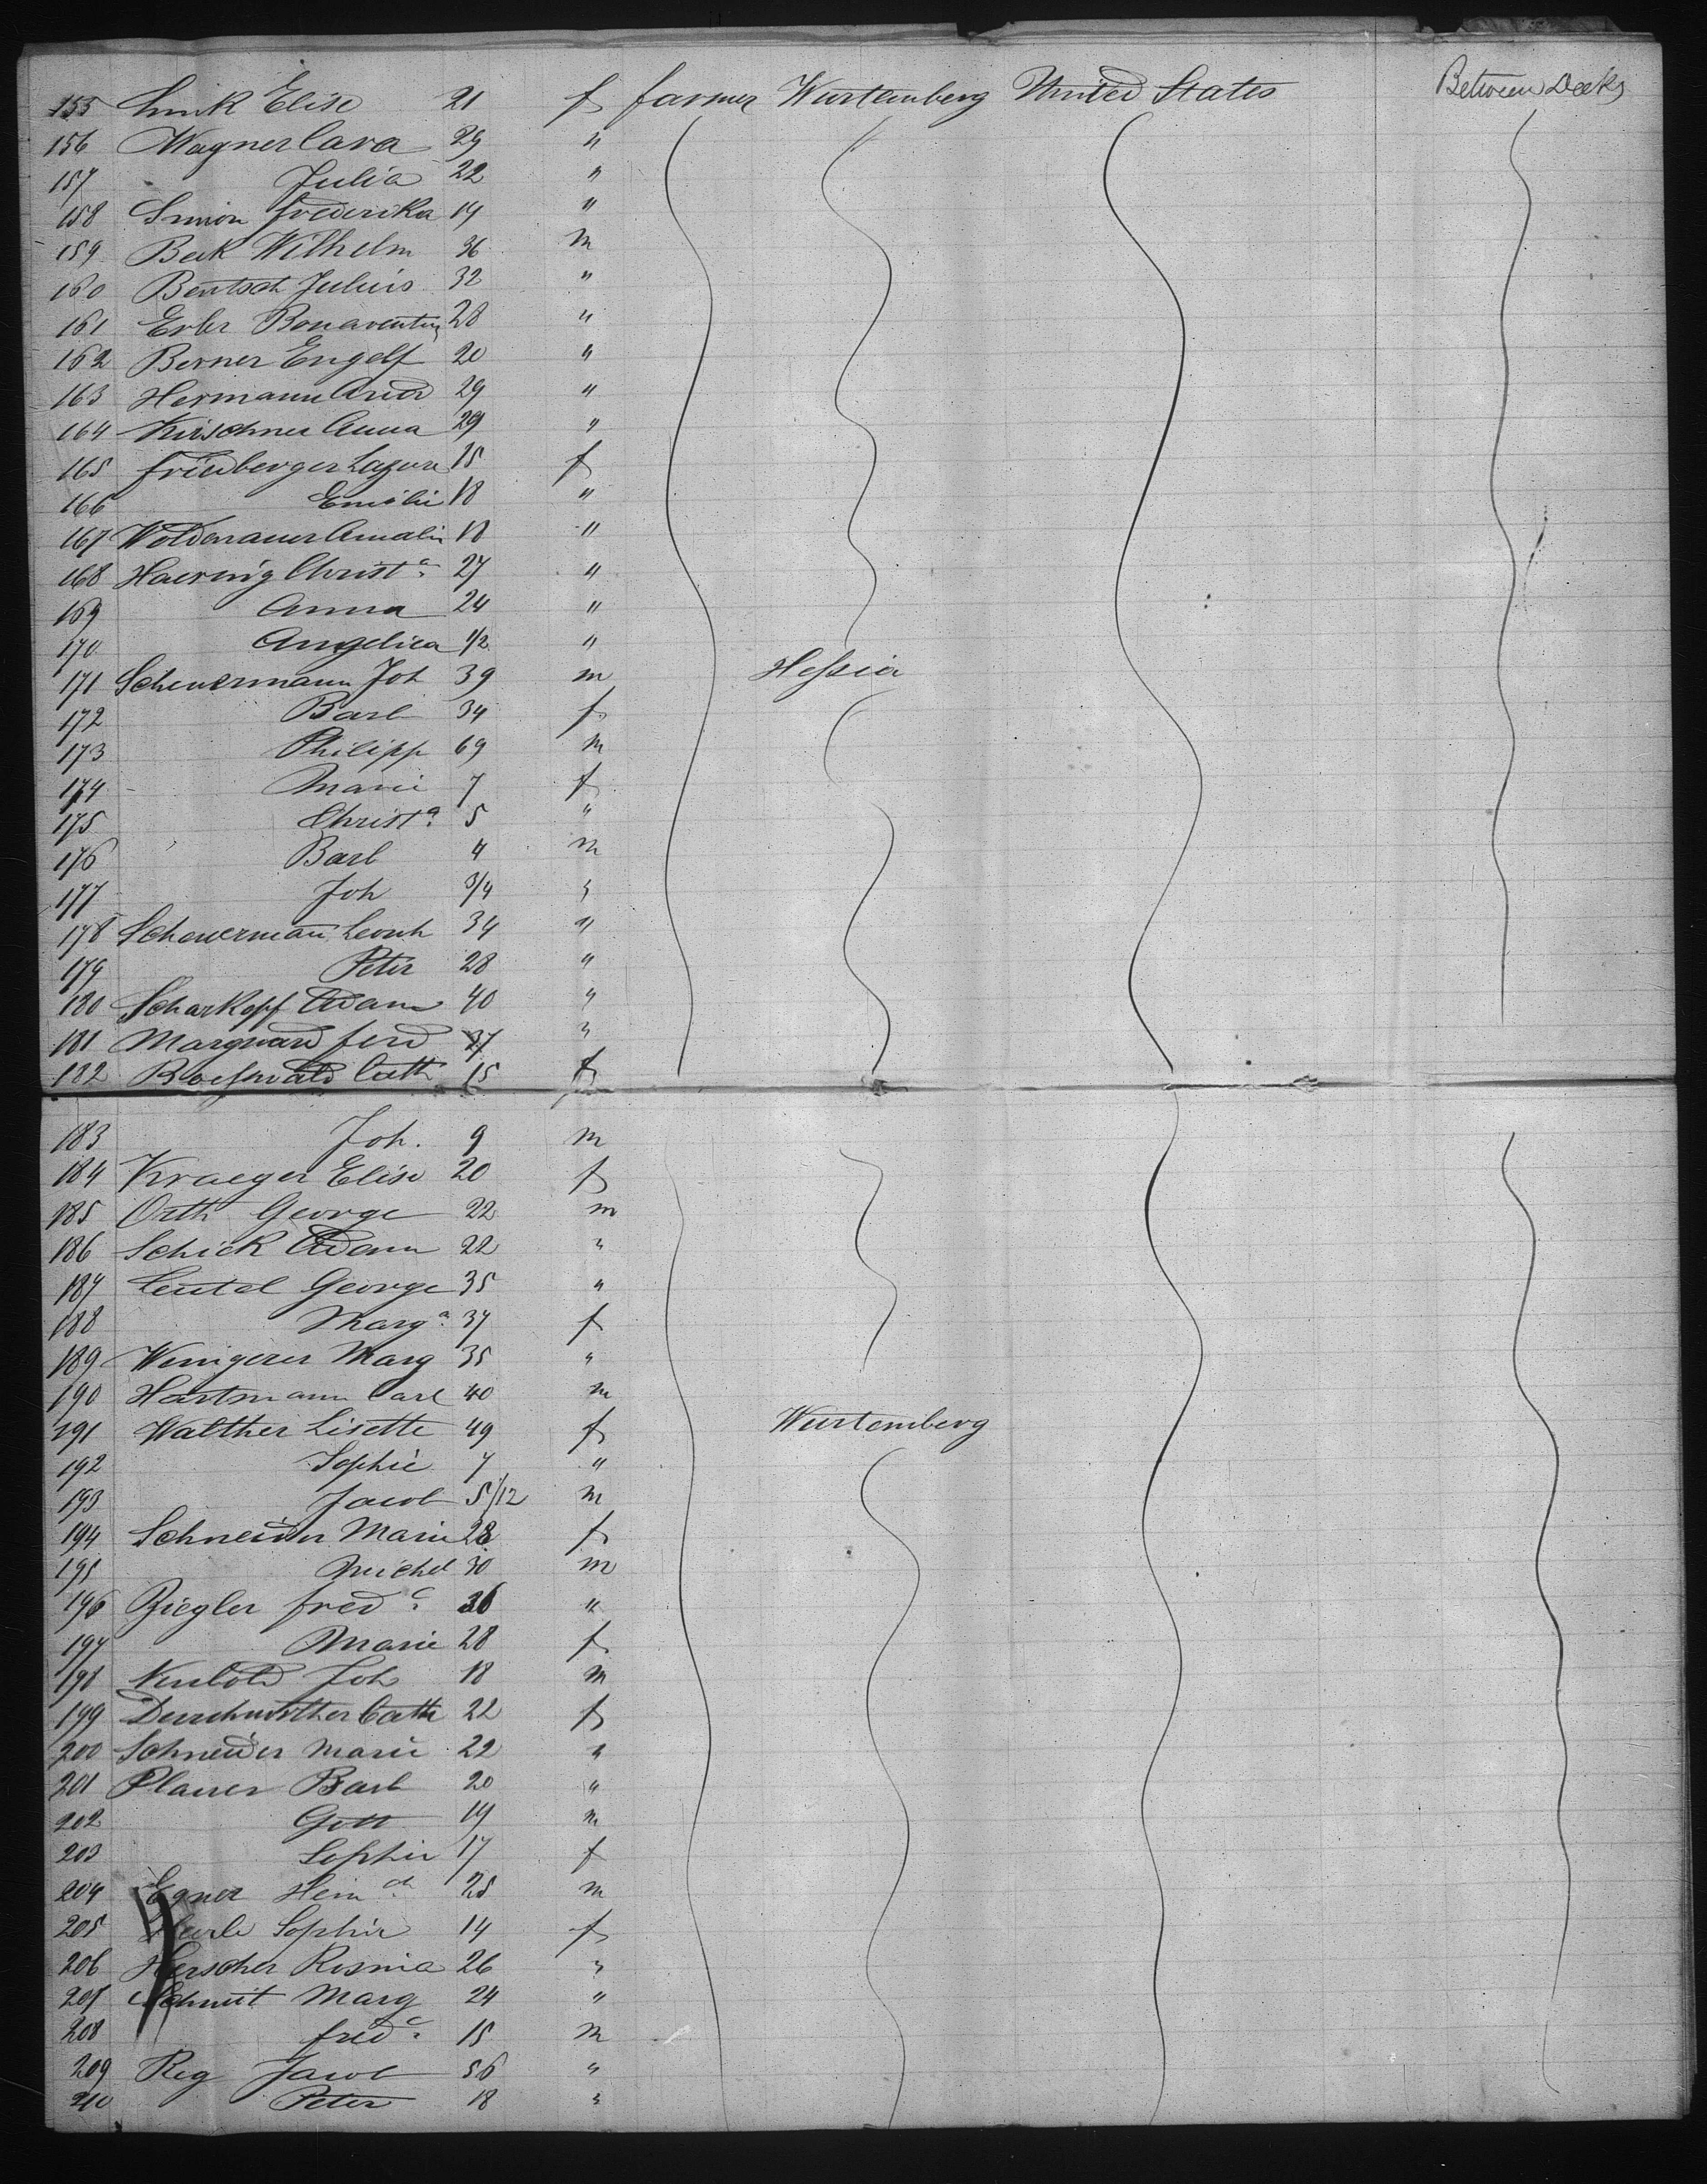 155 Link Elise 21 f farmer Wurtemberg United States Between Decks
156 Wagner Cara 29 "
157 Julia 22 "
158 Simon frederika 19 "
159 Beck Wilhelm 36 m
160 Bentsch Julius 32 "
161 Erler Bonaventur 28 "
162 Berner Engelf 20 "
163 Hermann 29 "
164 Kirschner Anna 29 "
165 friedberger 15 f
166 Emilie 18 "
167 Amalie 18 "
168 Haernig Christ.a 27 "
169 Anna 24 "
170 Angelica 1/2 "
171 Scheuermann Joh 39 m Hessia
172 Barb 34 f
173 Philipp 69 m
174 Marie 7 f
175 Christ.a 5 "
176 Barb 4 m
177 Joh 3/4 "
178 Scheuerman Leonh 34 "
179 Peter 28 "
180 Scharkopf Adam 40 "
181 Marquard ferd 27 "
182 Cath 15 f
183 Joh. 9 m
184 Kraeger Elise 20 f
185 Orth George 22 m
186 Schick Adam 22 "
187 Leutel George 35 "
188 Marg.a 37 f
189 Wenigerer Marg 35 "
190 Hartmann Carl 40 m
191 Walther Lisette 49 f Wurtemberg
192 Sophie 7 "
193 Jacob 5/12 m
194 Schneider Marie 28 f
195 Michel 30 m
196 Ziegler fred.c 36 "
197 Marie 28 f
198 Joh 18 m
199 Cath 22 f
200 Schneider Marie 22 "
201 Plauer Barb 20 "
202 Gott 19 m
203 Sophie 17 f
204 Egner Hein.ch 25 m
205 Sophie 14 f
206 Herscher Rosina 26 "
207 Schmit Marg 24 "
208 fred.c 15 m
209 Reg Jacob 56 "
210 Peter 18 "